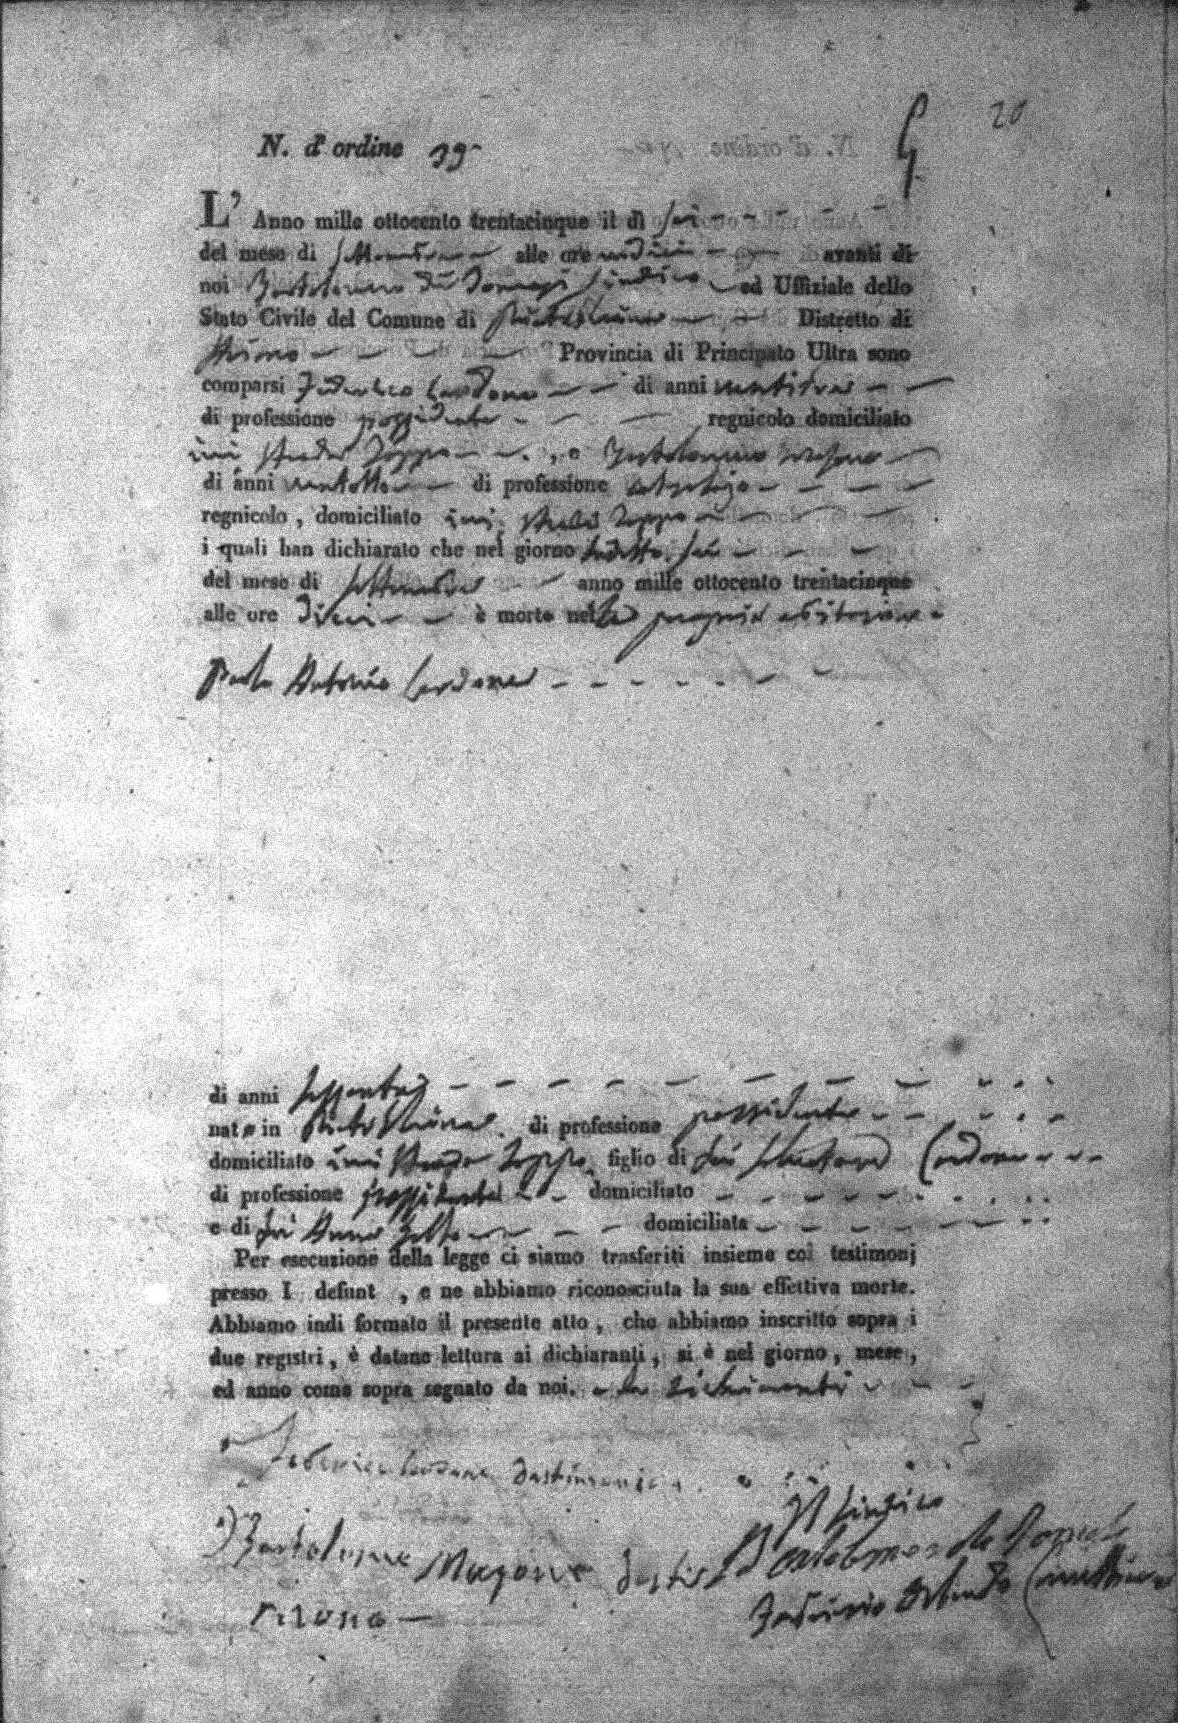 20
N. d' ordine 39
L' Anno mille ottocento trentacinque il dì sei
del mese di Settembre alle ore undici avanti di
noi Bartolomeo Sindaco ed Uffiziale dello
Stato Civile del Comune di Distretto di
Provincia di Principato Ultra sono
comparsi Federico Cardone di anni
di professione possidente regnicolo domiciliato
ivi Strada Toppo , e Bartolomeo
di anni ventotto di professione
regnicolo, domiciliato ivi Strada Toppo
i quali han dichiarato che nel giorno sudetto sei
del mese di Settembre anno mille ottocento trentacinque
alle ore dieci è morto nella propria abitazione
Antonio Cardone
di anni sessanta
nato in di professione possidente
domiciliato ivi Strada Toppo figlio di fu Cardone
di professione possidente domiciliato
e di fu Anna domiciliata
Per esecuzione della legge ci siamo trasferiti insieme coi testimonj
presso I defunt , e ne abbiamo riconosciuta la sua effettiva morte.
Abbiamo indi formato il presente atto, che abbiamo inscritto sopra i
due registri, è datane lettura ai dichiaranti, si è nel giorno, mese,
ed anno come sopra segnato da noi. e da dichiaranti
Federico Cardone
Il Sindaco
Bartolomeo
Bartolomeo de